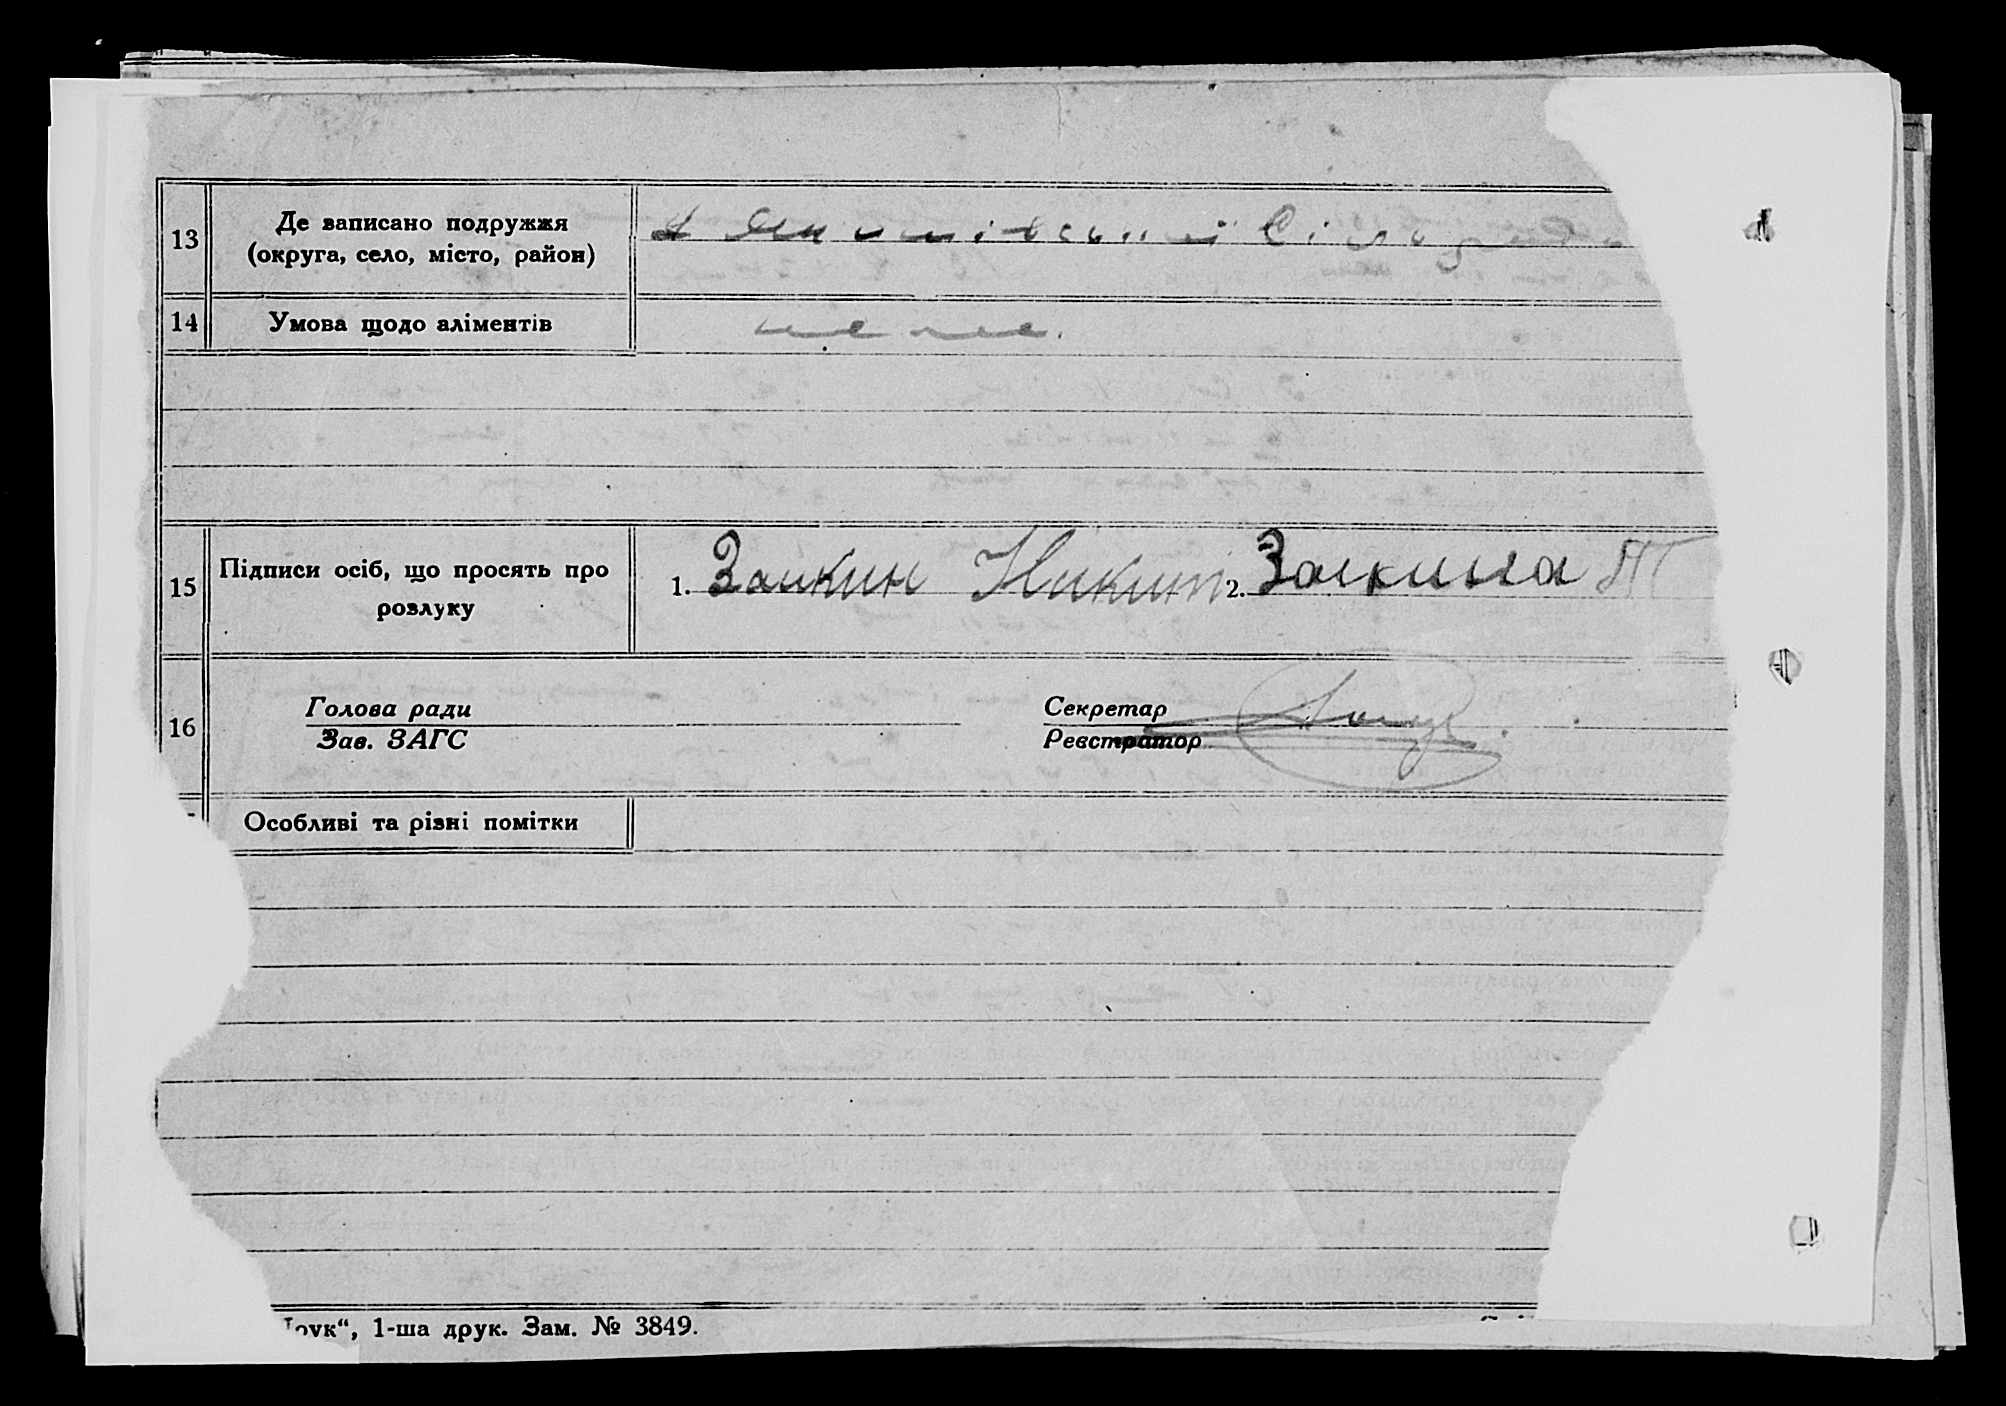 13 Де записано подружжя
(округа, село, місто, район)
14 Умова щодо аліментів
немає.
15 Підписи осіб, що просять про
розлуку
1. Заикин Никит 2. Заикина
16 Голова ради Секретар
Зав. ЗАГС Реєстратор
Особливі та різні помітки
1-ша друк. Зам. № 3849.